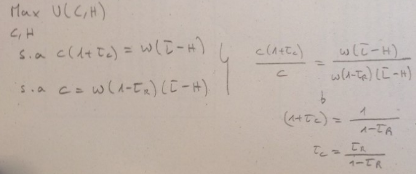 Max U(C,H)
C,H
s.a c(1+τc) = w(L̄-H)
s.a c = w(1-τR)(L̄-H)
c(1+τc)/c = w(L̄-H)/w(1-τR)(L̄-H)
(1+τc) = 1/1-τR
τc = τR/1-τR